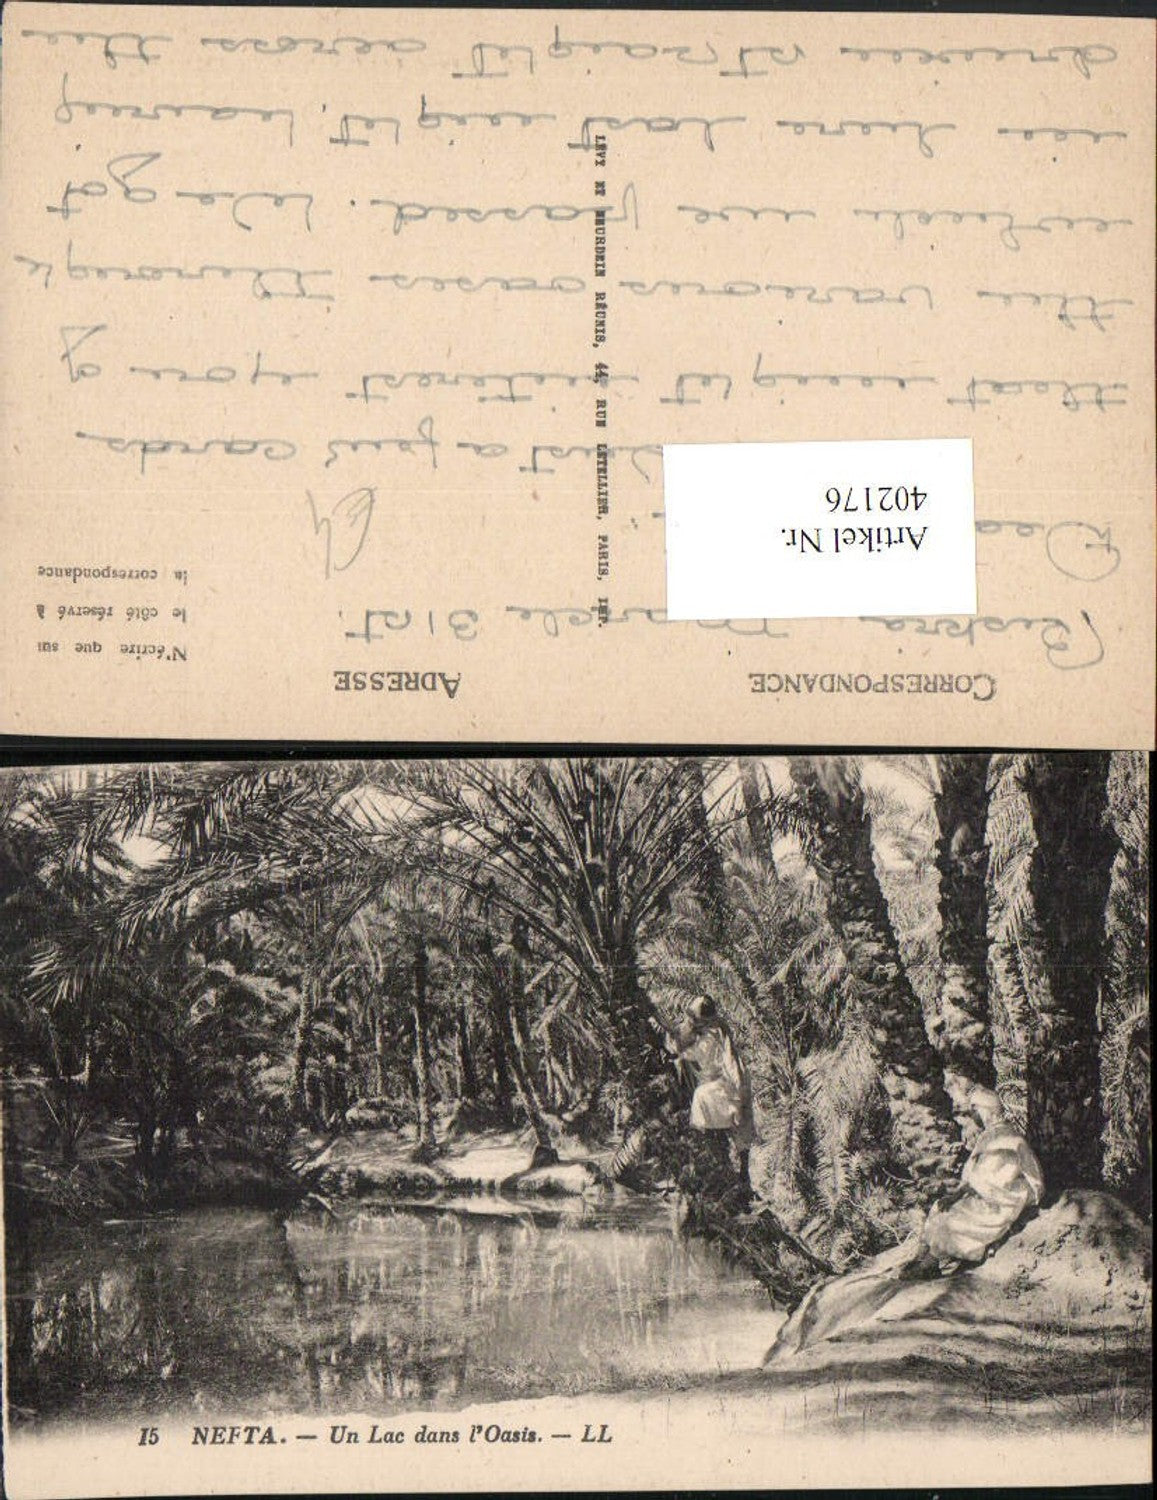 CORRESPONDANCE
ADRESSE
N'écrire que sur
le côté réservé à
la correspondance
Biskra March 31st.
Artikel Nr.
402176
Just a few cards
that might interest you of
the various oases through
which we passed. We got
in here last night, having
driven straight across the
LÉVY ET NEURDEIN RÉUNIS, 44, RUE LETELLIER, PARIS, IMP.
15 NEFTA. — Un Lac dans l'Oasis. — LL